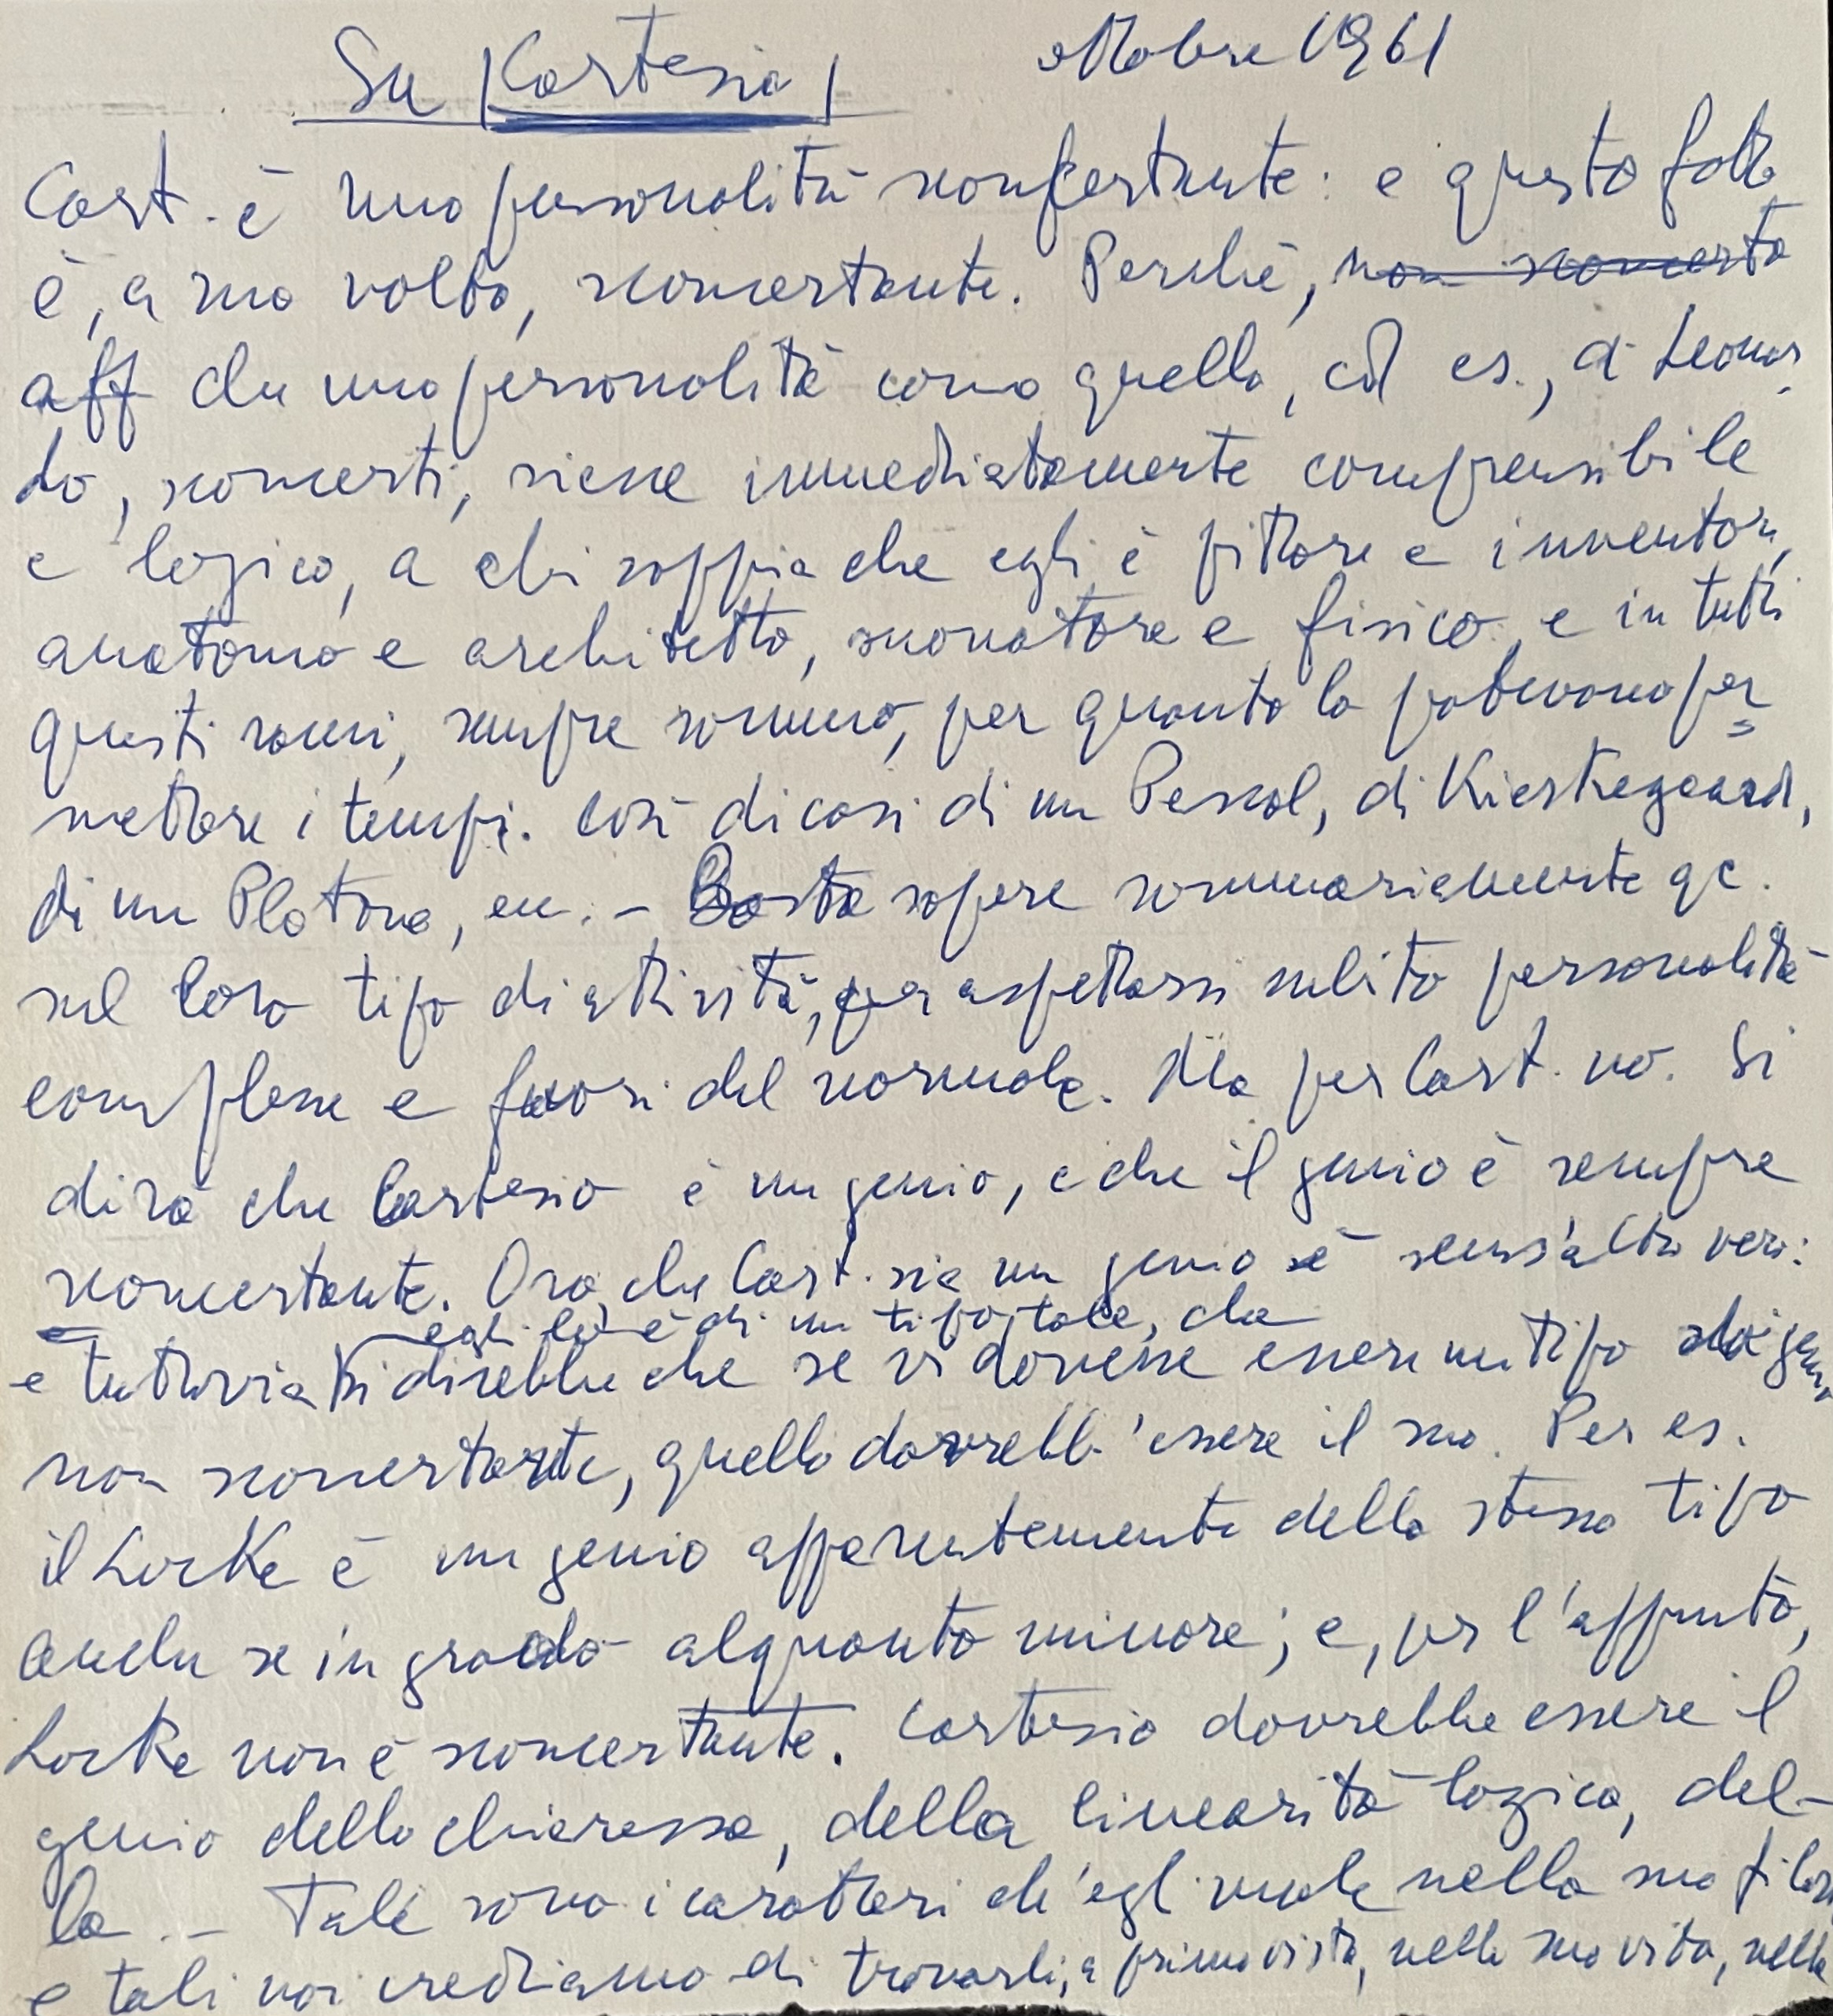 Su Cartesio ottobre 1961
Cart. è una personalità sconcertante: e questo fatto
è, a sua volta, sconcertante. Perché, non sconcerta
aff che una personalità come quella, ad es., di Leonar
do, sconcerti, riesce immediatamente comprensibile
e logico, a chi sappia che egli è pittore e inventore,
anatomo e architetto, suonatore e fisico, e in tutti
questi rami, sempre sommo, per quanto lo potevano per
mettere i tempi. Così dicasi di un Pascal, di Kierkegaard,
di un Platone, ecc. – Basta sapere sommariamente qc.
sul loro tipo di attività, per aspettarsi subito personalità
complesse e fuori del normale. Ma per Cart. no. Si
dirà che Cartesio è un genio, e che il genio è sempre
sconcertante. Ora, che Cart. sia un genio è senz'altro vero:
egli lo è di un tipo tale, che
e tuttavia si direbbe che se vi dovesse essere un tipo di genio
non sconcertante, quello dovrebb'essere il suo. Per es.
il Locke è un genio apparentemente dello stesso tipo
anche se in grado alquanto minore; e, per l'appunto,
Locke non è sconcertante. Cartesio dovrebbe essere il
genio della chiarezza, della linearità logica, del-
la .– Tali sono i caratteri ch'egli vuole nella sua filos
e tali noi crediamo di trovarli, a prima vista, nella sua vita, nella